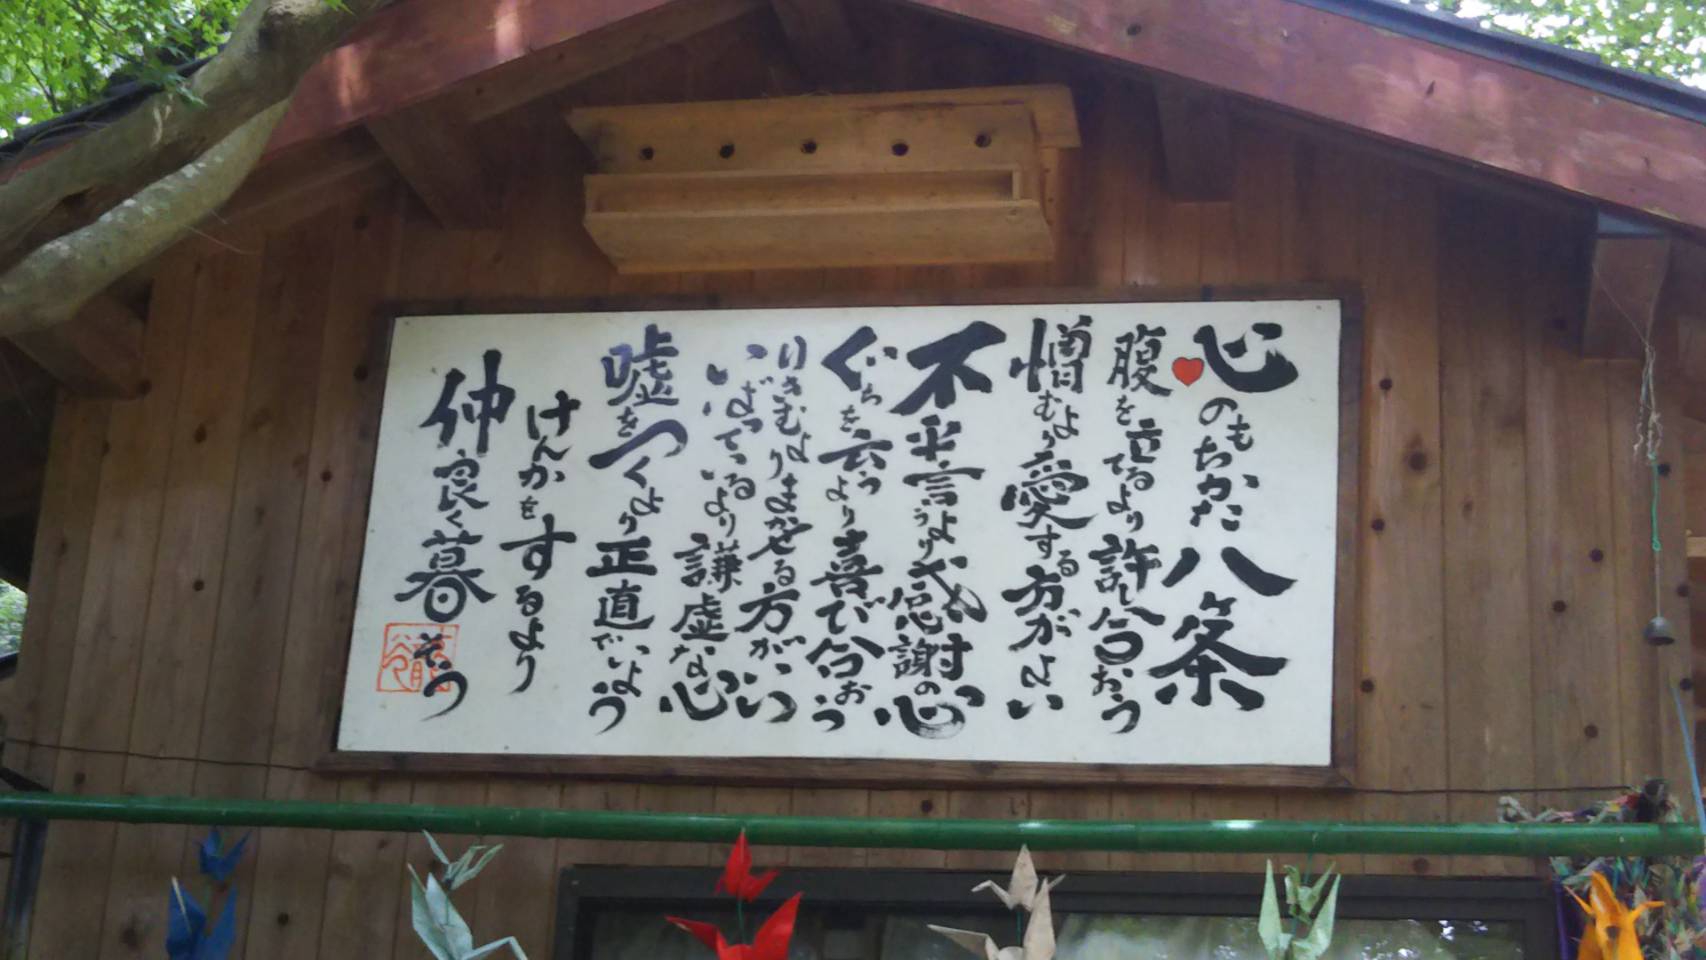 心のもちかた八条
腹を立てるより許し合おう
憎むより愛する方がよい
不平言うより感謝の心
ぐちを云うより喜び合おう
りきむよりまかせる方がいい
いばっているより謙虚な心
嘘をつくより正直でいよう
けんかをするより
仲良く暮そう